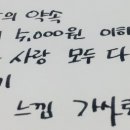 의 약속
4,000원 이하
사랑 모두 다
기
느낌 가사로